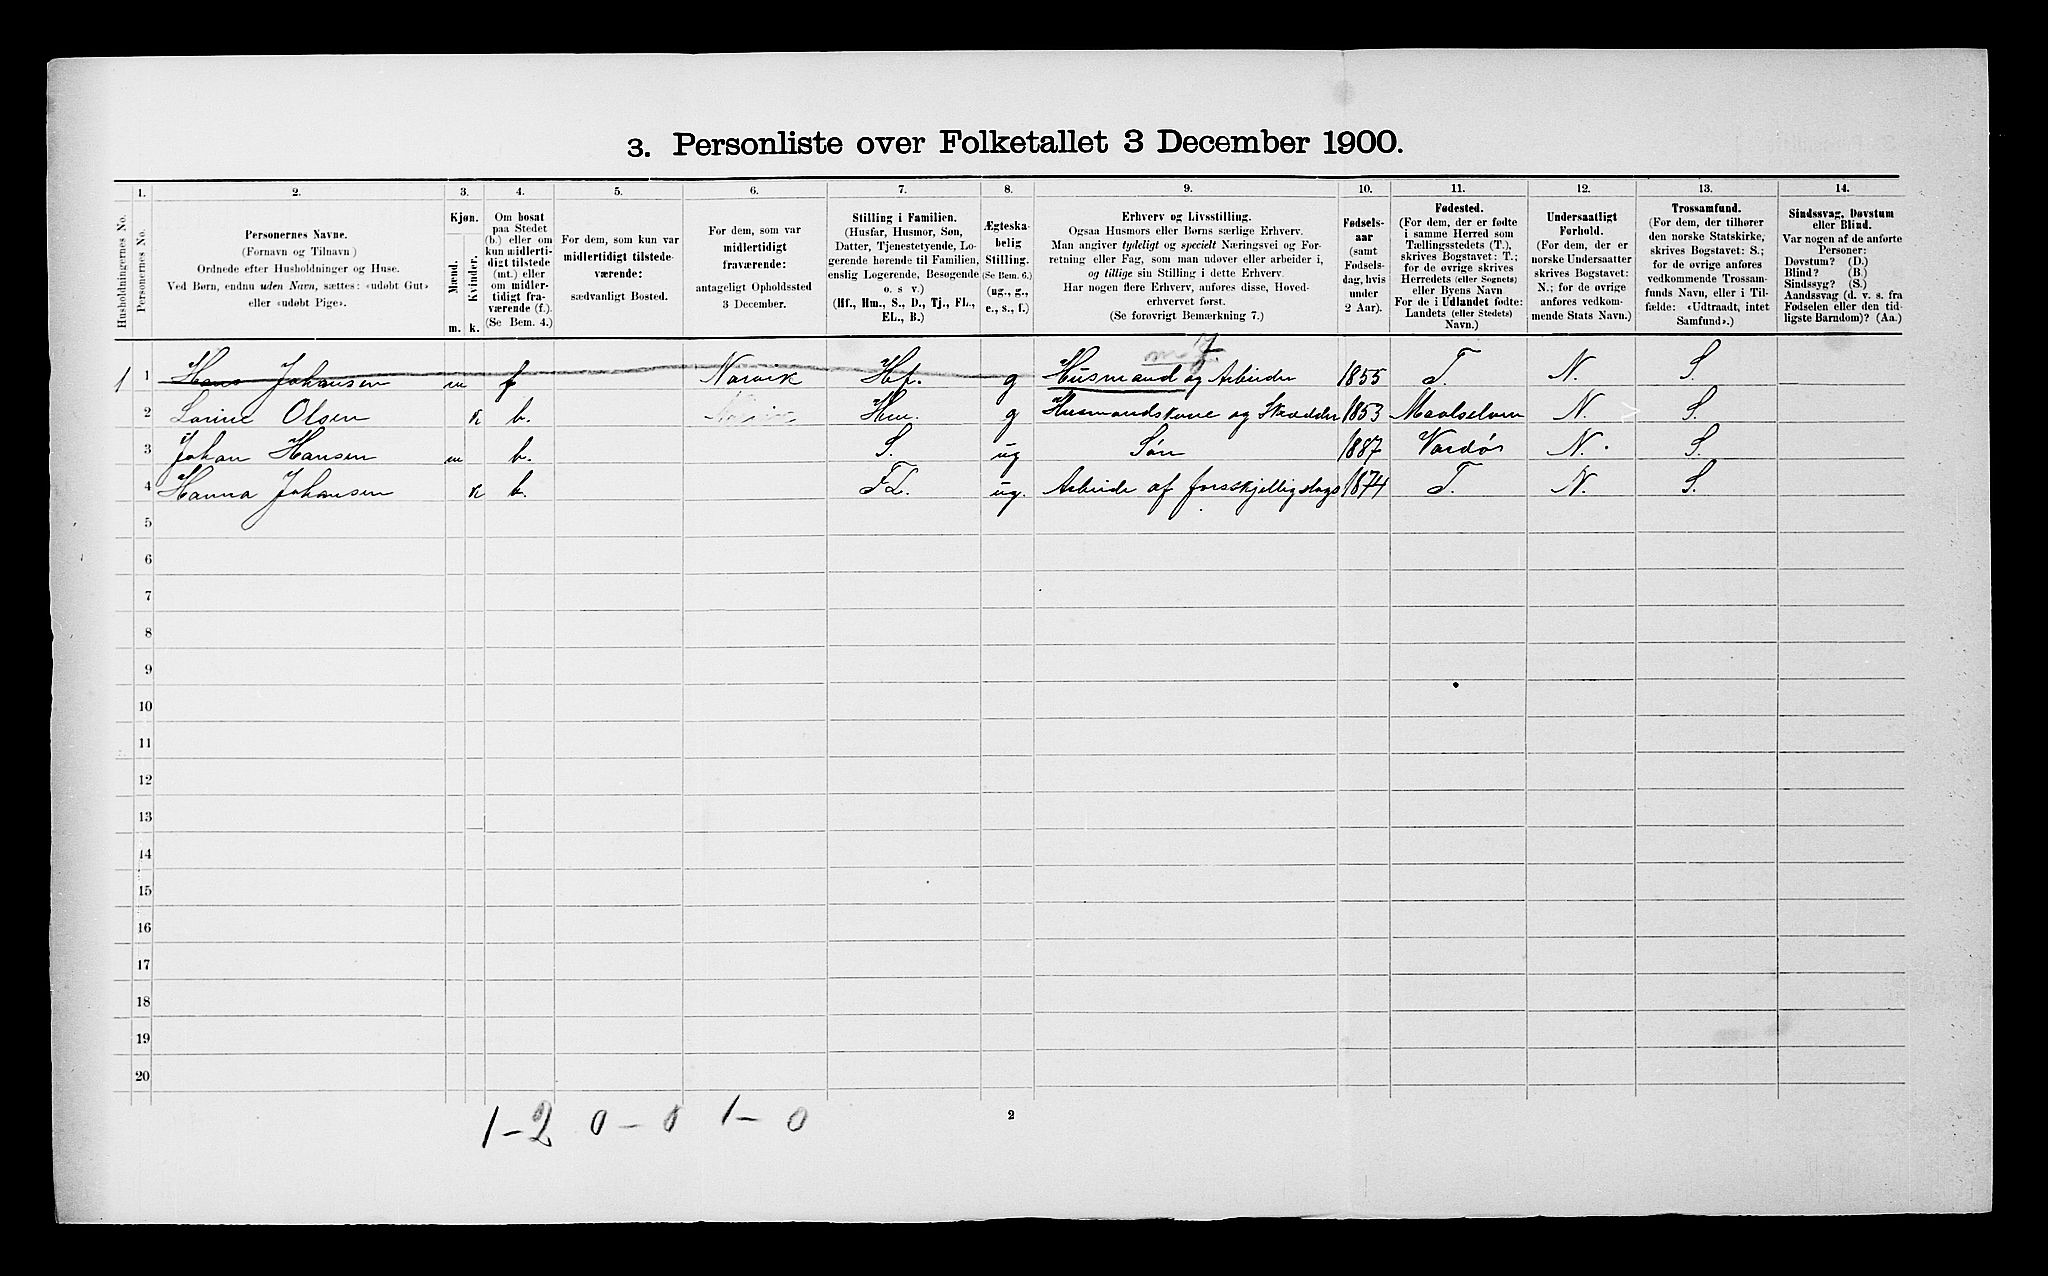 3. Personliste over Folketallet 3 December 1900.
1. 2. 3. 4. 5. 6. 7. 8. 9. 10. 11. 12. 13. 14.
Husholdningernes No.
Personernes No.
Personernes Navne.
(Fornavn og Tilnavn)
Ordnede efter Husholdninger og Huse.
Ved Børn, endnu uden Navn, sættes: «udøbt Gut»
eller «udøbt Pige».
Kjøn.
Mænd.
Kvinder.
m. k.
Om bosat
paa Stedet
(b.) eller om
kun midlerti-
digt tilstede
(mt.) eller
om midler-
tidigt fra-
værende (f.).
(Se Bem. 4.)
For dem, som kun var
midlertidigt tilstede-
værende:
sædvanligt Bosted.
For dem, som var
midlertidigt
fraværende:
antageligt Opholdssted
3 December.
Stilling i Familien.
(Husfar, Husmor, Søn,
Datter, Tjenestetyende, Lo-
gerende hørende til Familien,
enslig Logerende, Besøgende
o. s. v.)
(Hf., Hm., S., D., Tj., FL.,
EL., B.)
Ægteska-
belig
Stilling.
(Se Bem. 6.)
(ug., g.,
e., s., f.)
Erhverv og Livsstilling.
Ogsaa Husmors eller Børns særlige Erhverv.
Man angiver tydeligt og specielt Næringsvei og For-
retning eller Fag, som man udøver eller arbeider i,
og tillige sin Stilling i dette Erhverv.
Har nogen flere Erhverv, anføres disse, Hoved-
erhvervet først.
(Se forøvrigt Bemærkning 7.)
Fødsels-
aar
(samt
Fødsels-
dag, hvis
under
2 Aar).
Fødested.
(For dem, der er fødte
i samme Herred som
Tællingsstedets (T.),
skrives Bogstavet: T.;
for de øvrige skrives
Herredets (eller Sognets)
eller Byens Navn
For de i Udlandet fødte:
Landets (eller Stedets)
Navn.)
Undersaatligt
Forhold.
(For dem, der er
norske Undersaatter
skrives Bogstavet:
N.; for de øvrige
anføres vedkom-
mende Stats Navn.)
Trossamfund.
(For dem, der tilhører
den norske Statskirke,
skrives Bogstavet: S.;
for de øvrige anføres
vedkommende Trossam-
funds Navn, eller i Til-
fælde: «Udtraadt, intet
Samfund».)
Sindssvag, Døvstum
eller Blind.
Var nogen af de anførte
Personer:
Døvstum? (D.)
Blind? (B.)
Sindssyg? (S.)
Aandssvag (d. v. s. fra
Fødselen eller den tid-
ligste Barndom)? (Aa.)
1 1 Hans Johansen m f Narvik Hf. g Husmand og Arbeider 1855 T. N. S.
2 Lorine Olsen k b. Narvik Hm. g Husmandskone og Skrædder 1853 Maalselven N. S.
3 Johan Hansen m b. S. ug Søn 1887 Vardø N. S.
4 Hanna Johansen k b. FL. ug. Arbeide af forskjelligslags 1874 T. N. S.
5
6
7
8
9
10
11
12
13
14
15
16
17
18
19
20
1 - 2 0 - 0 1 - 0
2